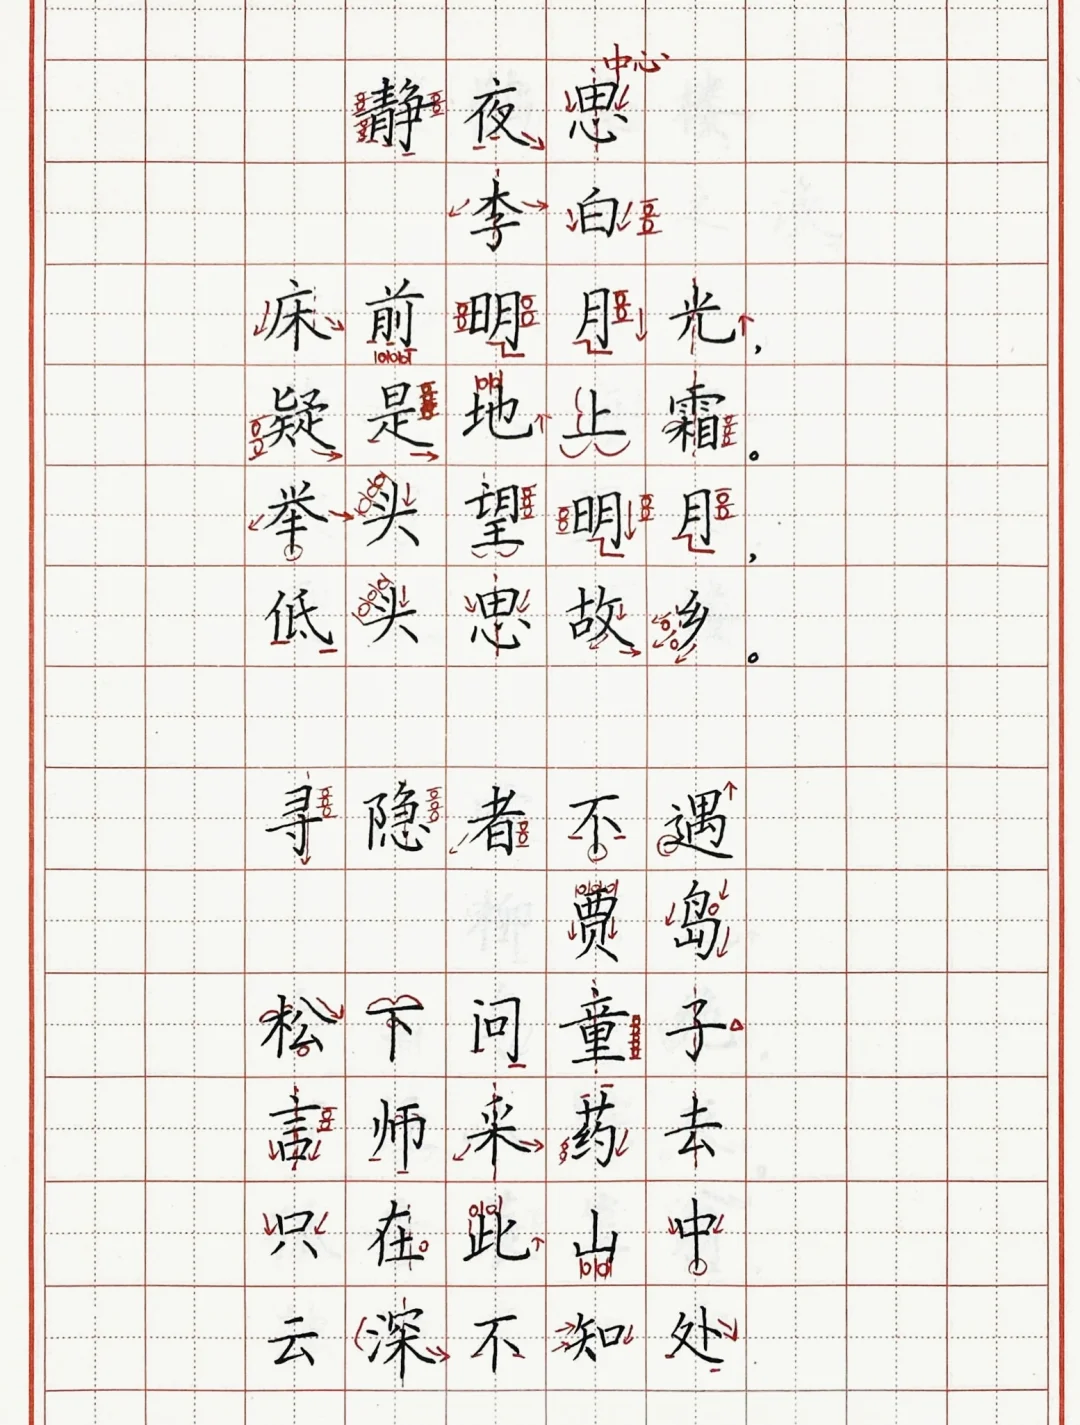 中心
静夜思
李白
床前明月光，
疑是地上霜。
举头望明月，
低头思故乡。
寻隐者不遇
贾岛
松下问童子
言师来药去
只在此山中
云深不知处